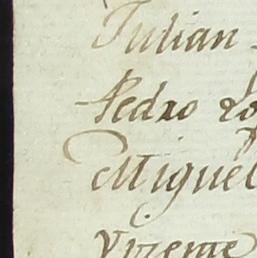 Julian
Pedro Lo
Miguel
Vizente